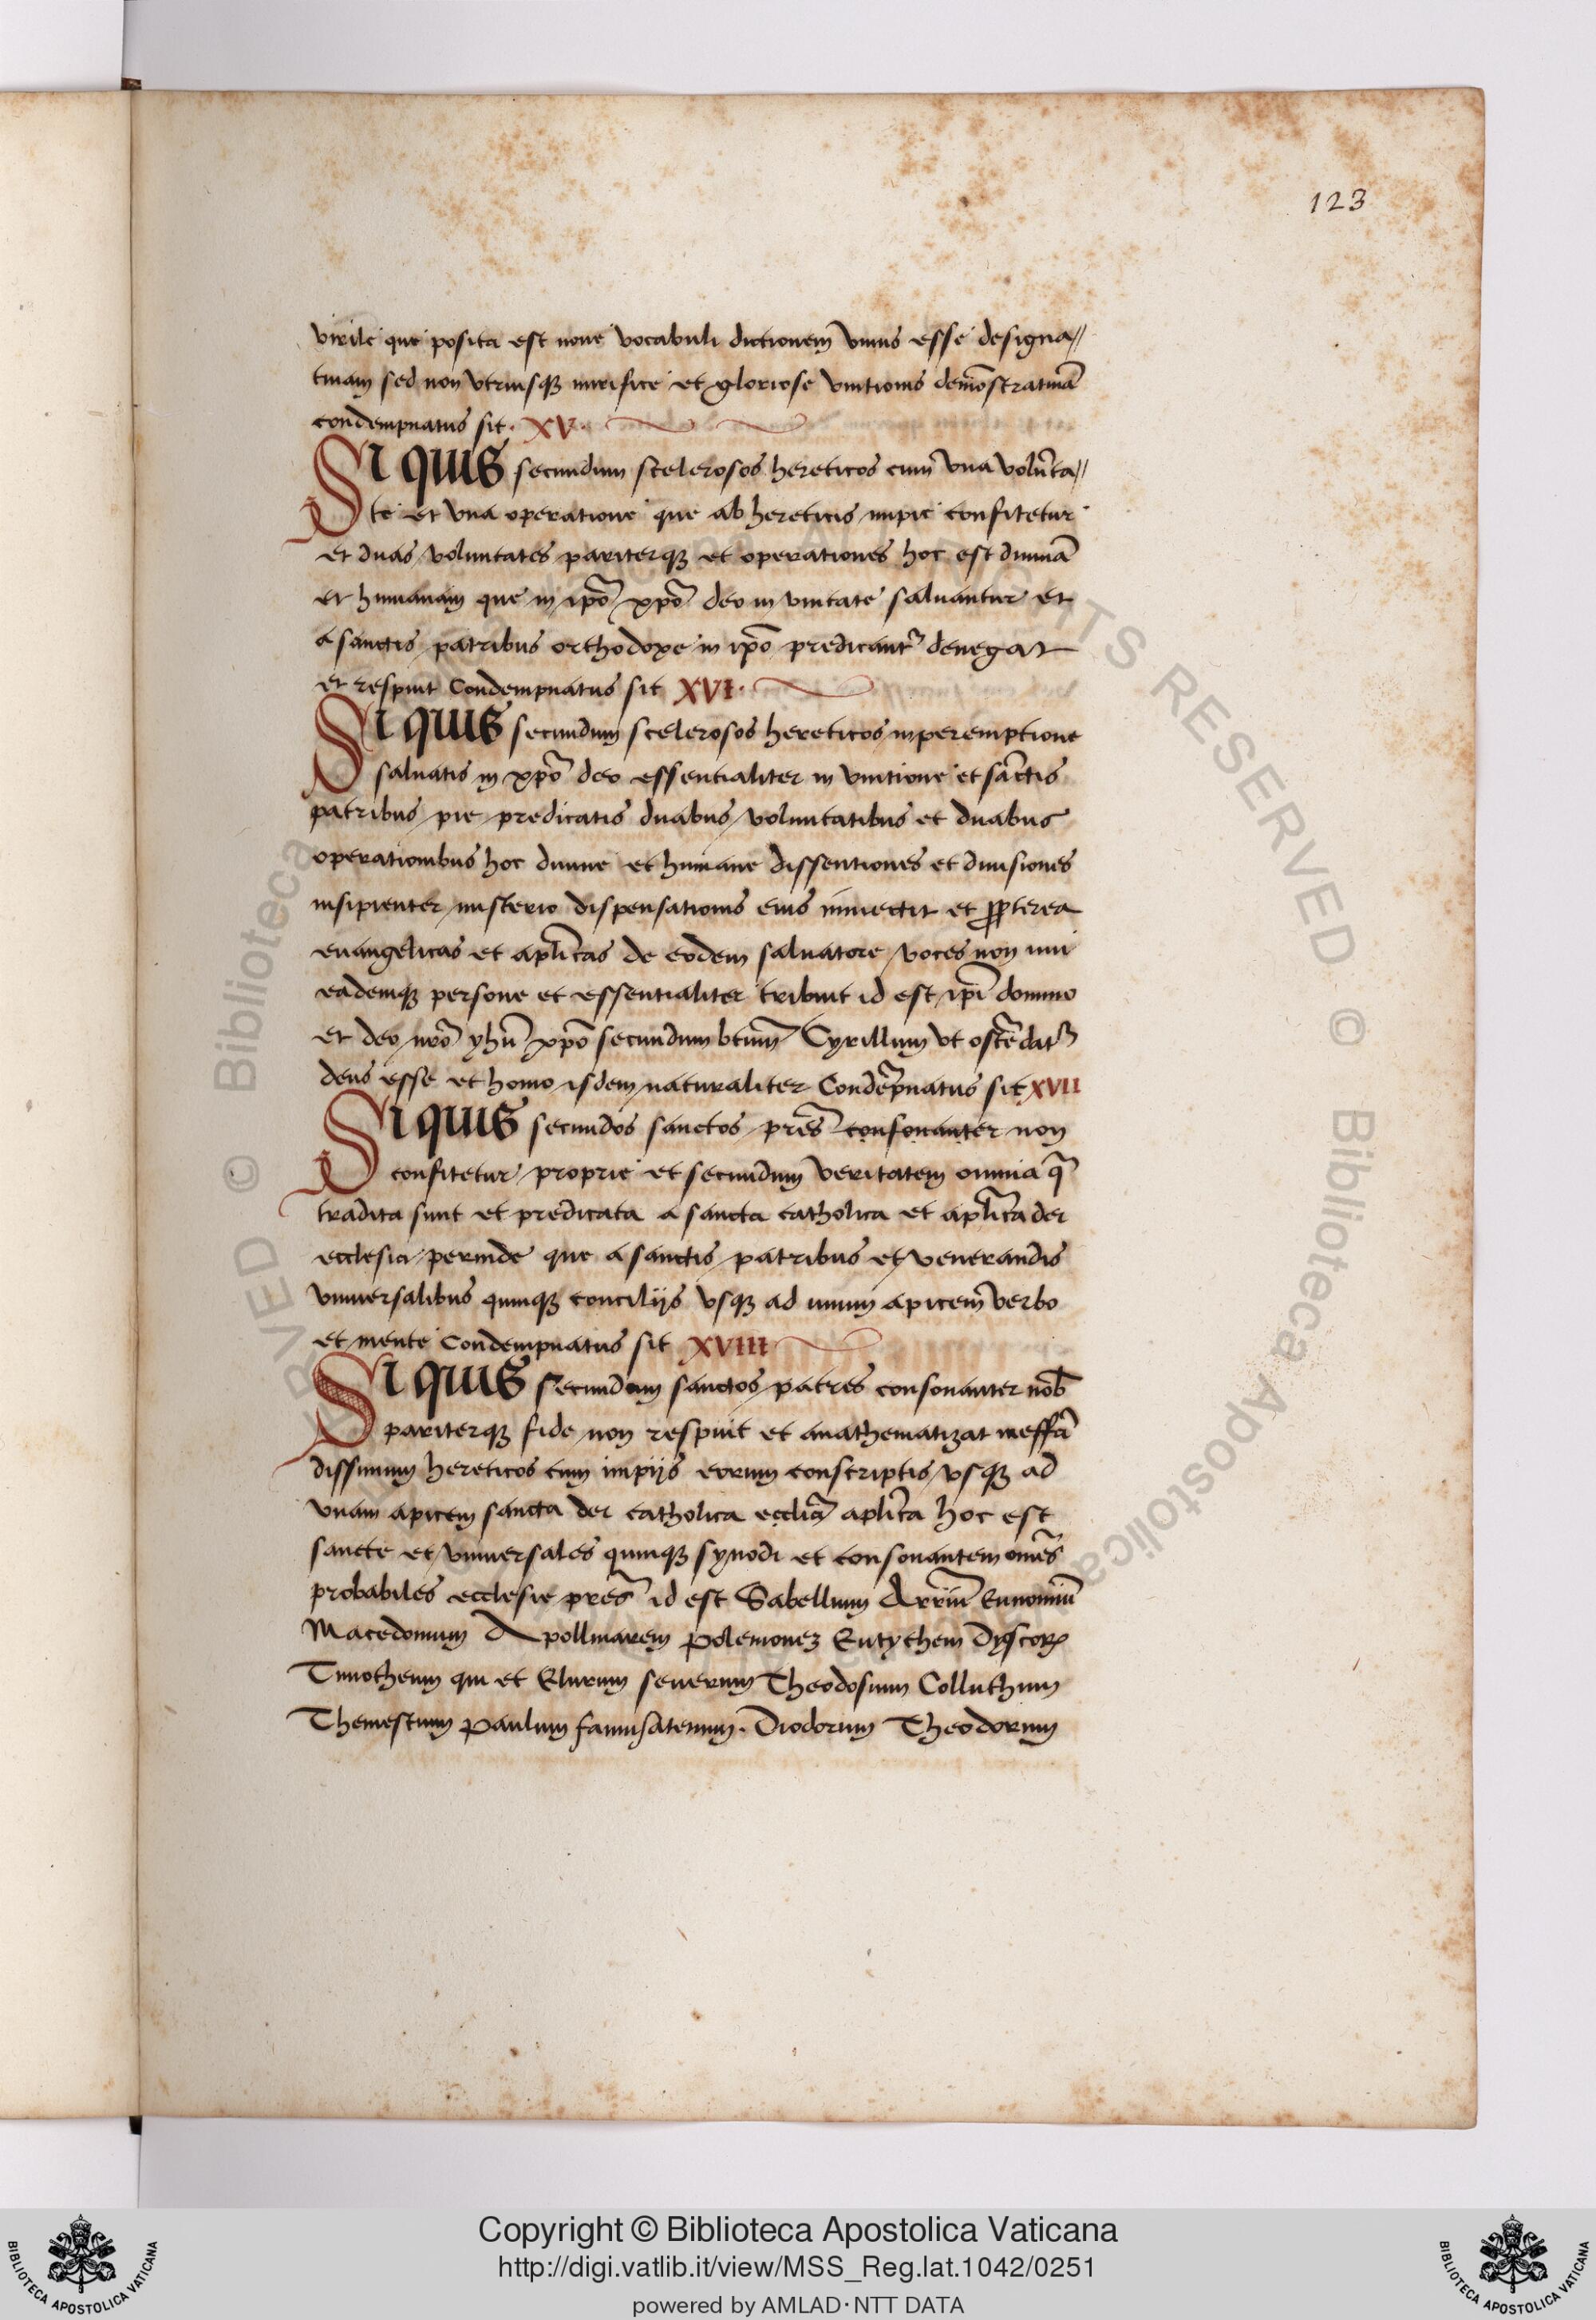 123
virile que posita est noue vocabuli dictionem vnius esse designa//
tiuam sed non vtriusqꝫ mirifice et gloriose vnitionis demōstratiuā
condempnatus sit. XV.
SI QUIS secundum scelerosos hereticos cum vna volūta//
te et vna operatione que ab hereticis impie confitetur
et duas voluntates pariterqꝫ et operationes hoc est diuinā
et humanam que in ip̄o xp̄o deo in vnitate saluantur et
a sanctis patribus orthodoxe in ip̄o predicant̃ denegat
et respuit Condempnatus sit XVI.
SI QUIS secundum scelerosos hereticos in peremptione
saluatis in xp̄o deo essentialiter in vnitione et sāctis
patribus pie predicatis duabus voluntatibus et duabus
operationibus hoc diuine et humane dissentiones et diuisiones
insipienter misterio dispensationis eius innectit et ꝓpterea
euangelicas et apl̄icas de eodem saluatore voces non uni
eademqꝫ persone et essentialiter tribuit id est ip̄i domino
et deo nr̄o yhū xp̄o secundum btum̄ Cyrillum vt ostēdat̃
deus esse et homo isdem naturaliter Condēpnatus sit XVII
SI QUIS secundos sanctos pr̄es consonanter non
confitetur proprie et secundum veritatem omnia q̄
tradita sunt et predicata a sancta catholica et apl̄ica dei
ecclesia perinde que a sanctis patribus et venerandis
vniuersalibus quinqꝫ concilijs vsqꝫ ad unum apicem verbo
et mente Condempnatus sit XVIII
SI QUIS secundum sanctos patres consonanter nob̄
pariterqꝫ fide non respuit et anathematizat neffā
dissimum hereticos cum impijs eorum conscriptis vsqꝫ ad
vnam apicem sancta dei catholica eccl̄ia apl̄ica hoc est
sancte et vniuersales quinqꝫ synodi et consonantem om̄es
probabiles ecclesie pres̄ id est Sabellium Arriū Eunomiū
Macedonium Apollinarem Polemonem Eutychem Dyscorꝝ
Timotheum qui et Elurum seuerum Theodosium Colluthum
Themestium Paulum samusatenum. Diodorum Theodorum
© Biblioteca Apostolica
ALL RIGHTS RESERVED
Copyright © Biblioteca Apostolica Vaticana
http://digi.vatlib.it/view/MSS_Reg.lat.1042/0251
powered by AMLAD·NTT DATA
BIBLIOTECA APOSTOLICA VATICANA
BIBLIOTECA APOSTOLICA VATICANA